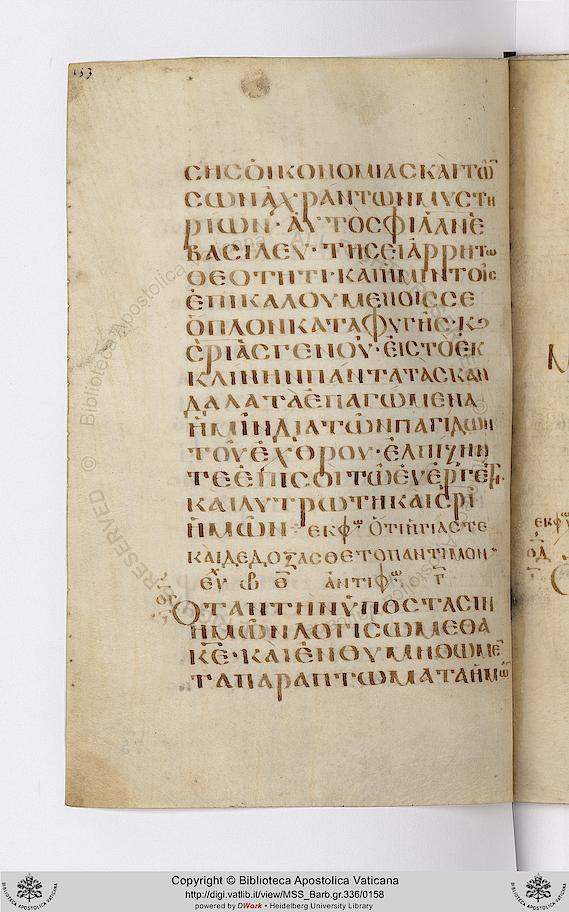 153
ϹΗϹὈΙΚΟΝΟΜΙΑϹΚΑῚΤῶ
ϹѠΝἈΧΡΑΝΤѠΝΜΥϹΤΗ
ΡΙѠΝ· ΑΥΤΟϹΦΙΛΑΝΕ
ΒΑϹΙΛΕΥ· ΤΗϹΕΙΑΡΡΗΤѠ
ΘΕΟΤΗΤΙ· ΚΑΙΗΜΙΝΤΟΙϹ
ἘΠΙΚΑΛΟΥΜΕΝΟΙϹϹΕ
ὉΠΛΟΝΚΑΤΑΦΥΓΗϹ
ϹΡΙΑϹΓΕΝΟΥ· ἘΙϹΤΟἘΚ
ΚΛΙΝΗΝΠΑΝΤΑΤΑϹΚΑΝ
ΔΑΛΑΤΑἘΠΑΓΟΜΕΝΑ
ΗΜΙΝΔΙΑΤѠΝΠΑΓΙΔѠΝ
ΤΟΥΕΧΘΡΟΥ· ἘΛΠΙΖΗΝ
ΤΕἘΠΙϹΟΙΤѠἘΥΕΡΓΕΤ
ΚΑΙΛΥΤΡѠΤΗΚΑΙϹΡΙ
ἩΜѠΝ· ΕΚΦ ὉΤΙΗΓΙΑϹΤΕ
ΚΑΙΔΕΔΟΞΑϹΘΕΤΟΠΑΝΤΙΜΟΝ
ΕΥ ΘΥ ἈΝΤΙΦ Γ
ΟΤΑΝΤΗΝΥΠΟϹΤΑϹΙΝ
ἩΜѠΝΛΟΓΙϹѠΜΕΘΑ
ΚΕ· ΚΑΙΕΝΟΥΜΗΘѠΜΕ
ΤΑΠΑΡΑΠΤѠΜΑΤΑΗΜῶ
ΕΚΦ
Copyright © Biblioteca Apostolica Vaticana
http://digi.vatlib.it/view/MSS_Barb.gr.336/0158
powered by DWork • Heidelberg University Library